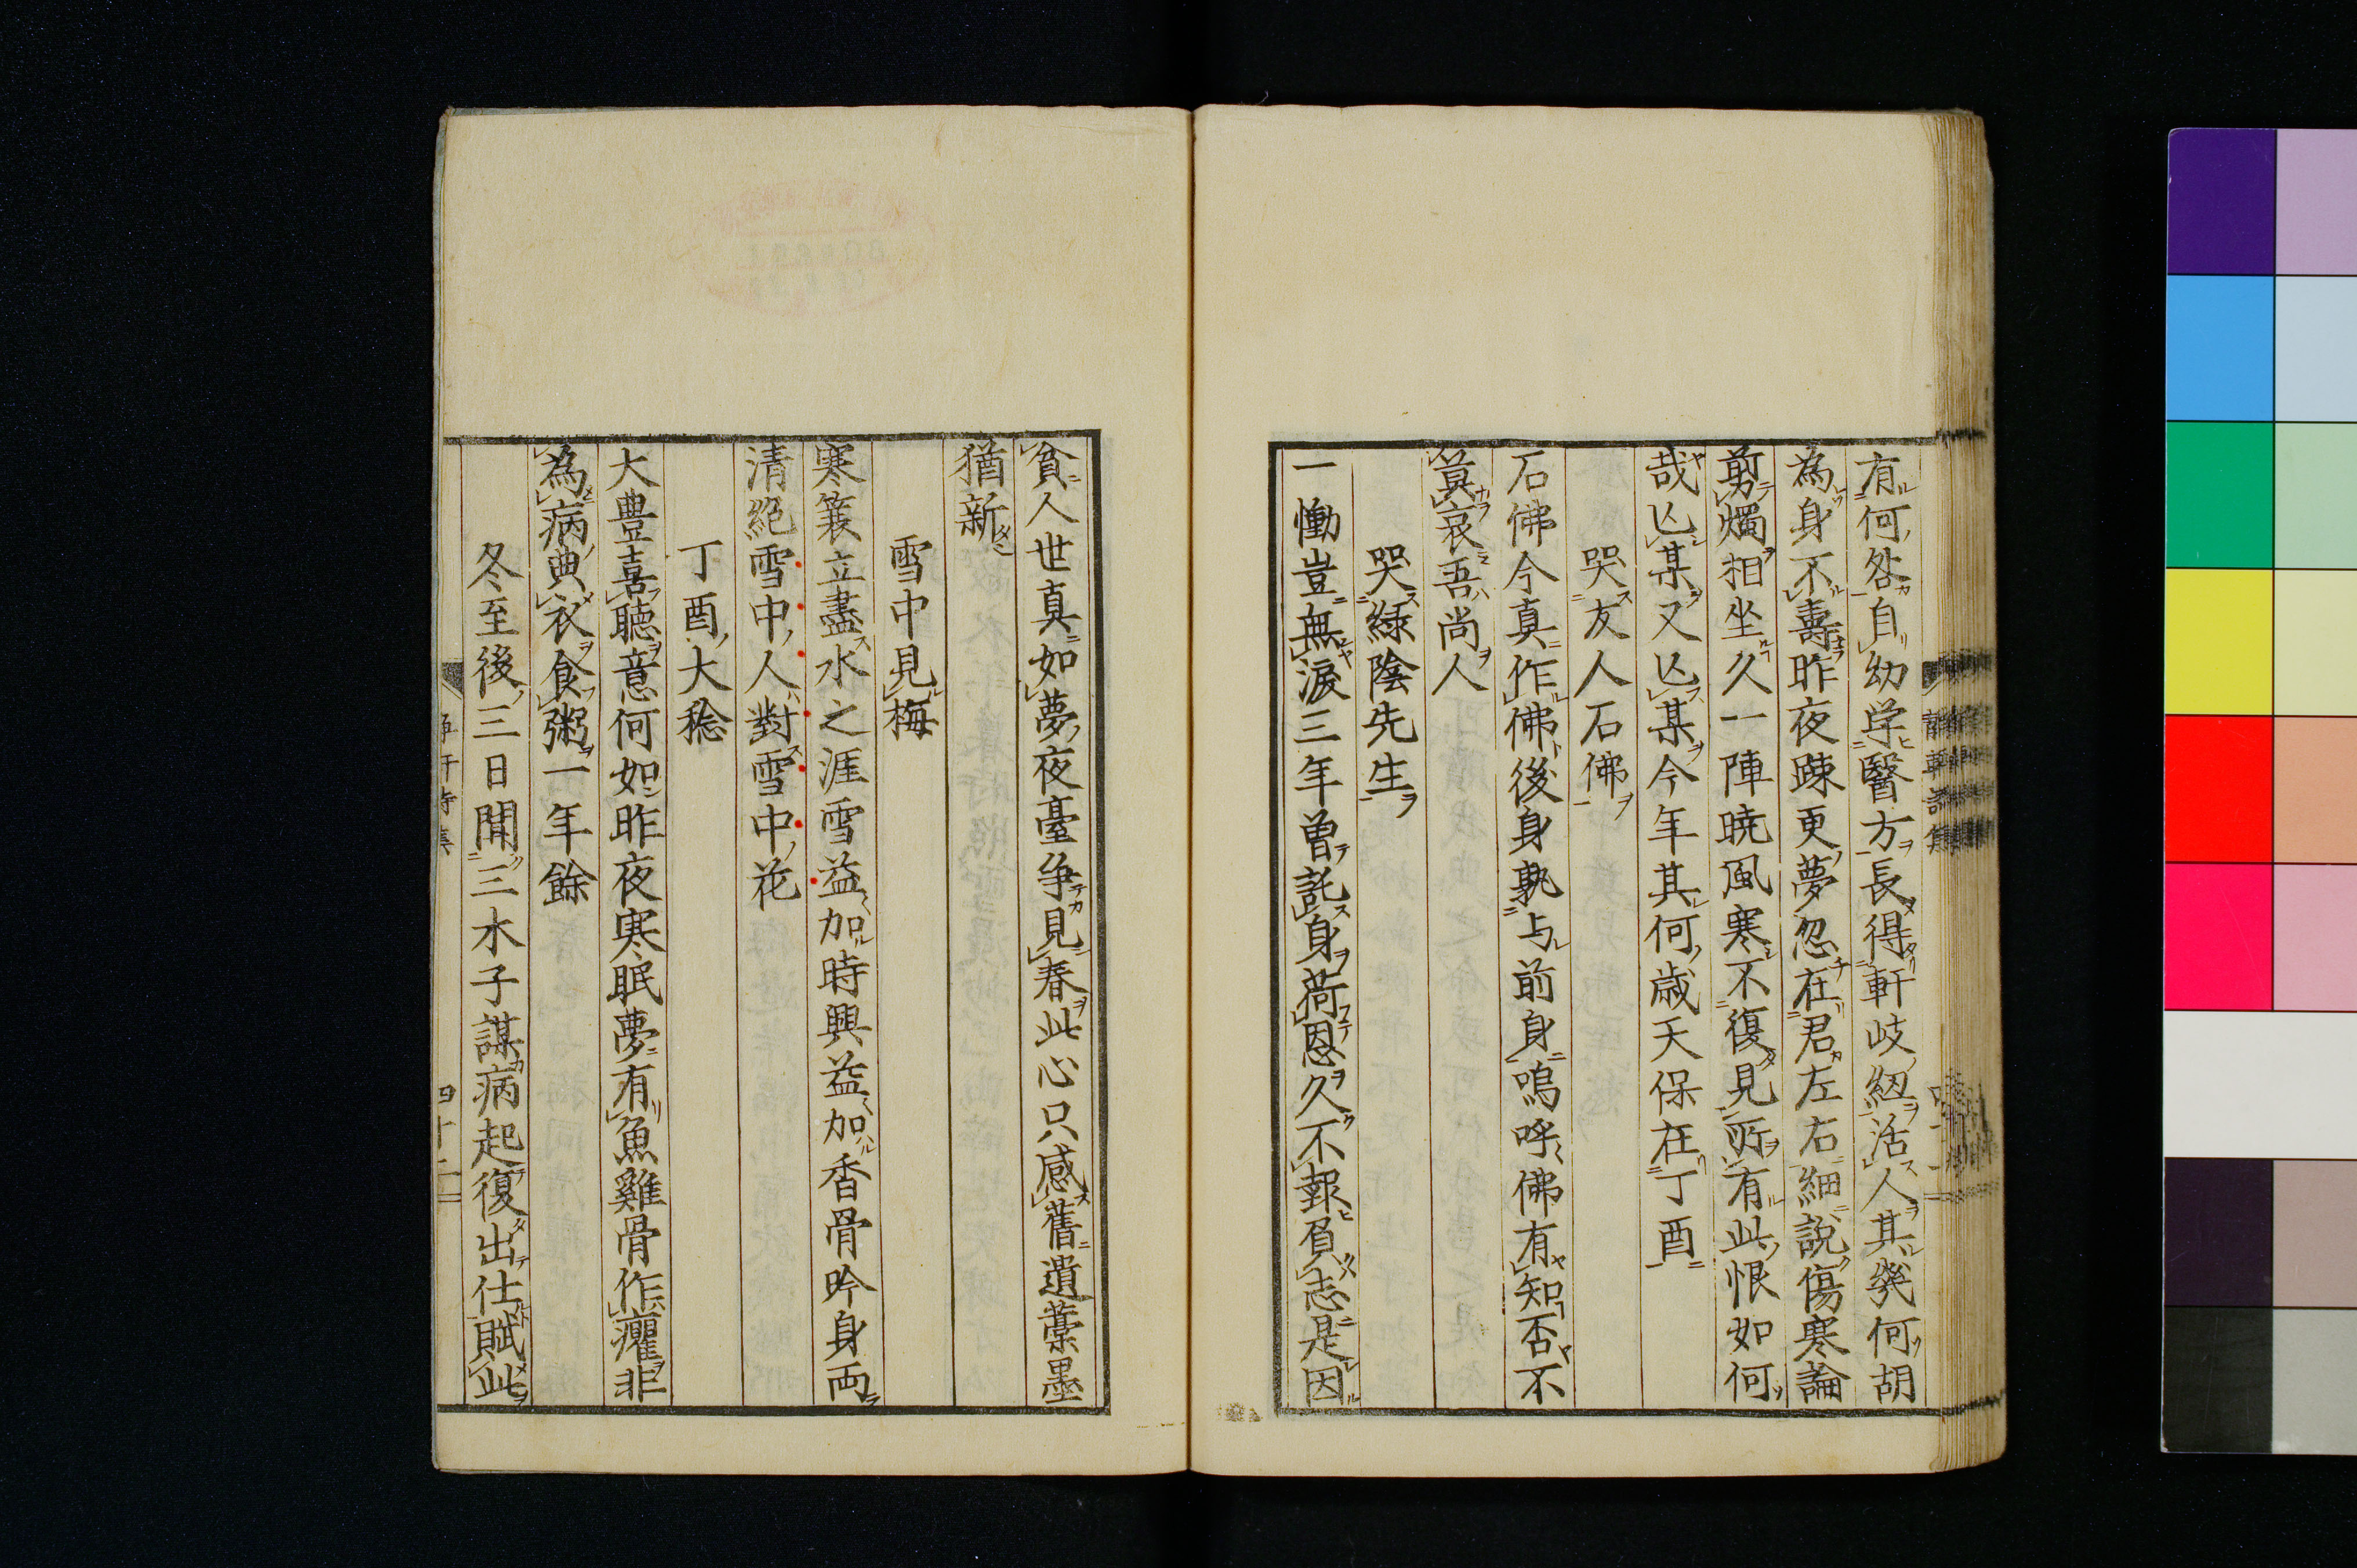 有何咎自幼学醫方長得軒岐紉活人其幾何胡
為身不壽昨夜踈更夢忽在君左右細說傷寒論
剪燭相坐久一陣暁風寒不復見所有此恨如何
哉亾某又亾某今年其何歳天保在丁酉
哭友人石佛
石佛今真作佛後身孰与前身嗚呼佛有知否不
算哀吾尚人
哭綠陰先生
一慟豈無淚三年曽託身荷恩久不報負志是因
貧人世真如夢夜臺争見春此心只感舊遺藁墨
猶新
雪中見梅
寒簑立盡水之涯雪益加時興益加香骨吟身両
清絕雪中人對雪中花
丁酉大稔
大豊喜聽意何如昨夜寒眠夢有魚雞骨作癯非
為病典衣食粥一年餘
冬至後三日聞三木子謀病起復出仕賦此
四十二